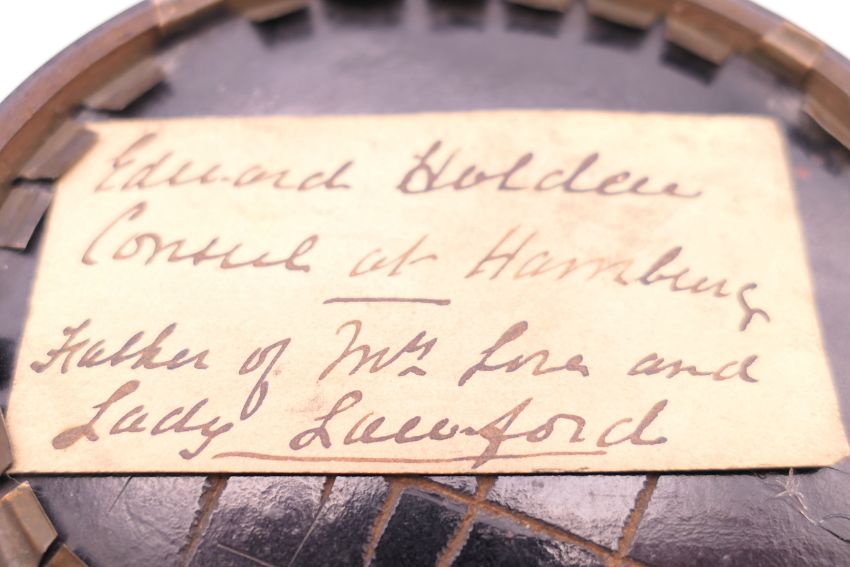 Edward Holden
Consul at Hamburg
Father of Mrs Lord and
Lady Lawford